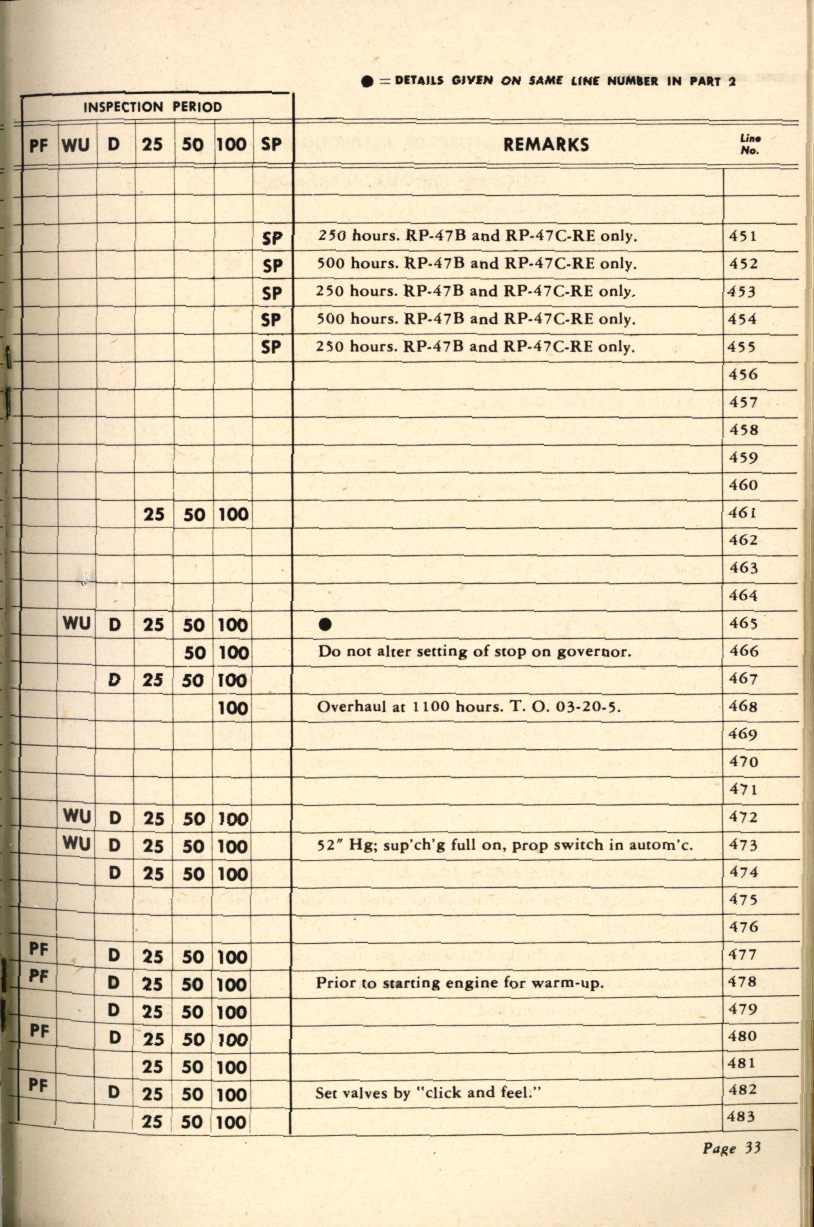 ● = DETAILS GIVEN ON SAME LINE NUMBER IN PART 2
INSPECTION PERIOD
PF WU D 25 50 100 SP REMARKS Line No.
SP 250 hours. RP-47B and RP-47C-RE only. 451
SP 500 hours. RP-47B and RP-47C-RE only. 452
SP 250 hours. RP-47B and RP-47C-RE only. 453
SP 500 hours. RP-47B and RP-47C-RE only. 454
SP 250 hours. RP-47B and RP-47C-RE only. 455
456
457
458
459
460
25 50 100 461
462
463
464
WU D 25 50 100 ● 465
50 100 Do not alter setting of stop on governor. 466
D 25 50 100 467
100 Overhaul at 1100 hours. T. O. 03-20-5. 468
469
470
471
WU D 25 50 100 472
WU D 25 50 100 52″ Hg; sup'ch'g full on, prop switch in autom'c. 473
D 25 50 100 474
475
476
PF D 25 50 100 477
PF D 25 50 100 Prior to starting engine for warm-up. 478
D 25 50 100 479
PF D 25 50 100 480
25 50 100 481
PF D 25 50 100 Set valves by "click and feel." 482
25 50 100 483
Page 33